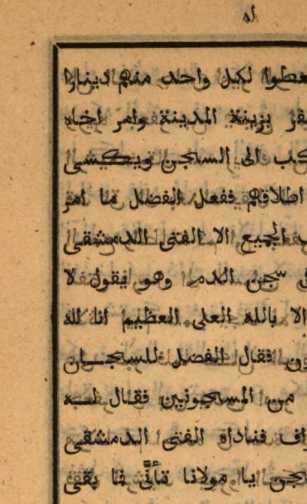 له
لكل واحد منهم دينارا
بزينة المدينة وامر اخاه
الى السجن ويكشى
اطلاقهم ففعل الفضل ما امر
الجميع الا الفتى الدمشقى
سجن الدم وهو يقول لا
الا بالله العلى العظيم انا لله
فقال الفضل للسجان
من المسجونين فقال له
فناداه الفتى الدمشقى
يا مولانا تأنّى فا بقى